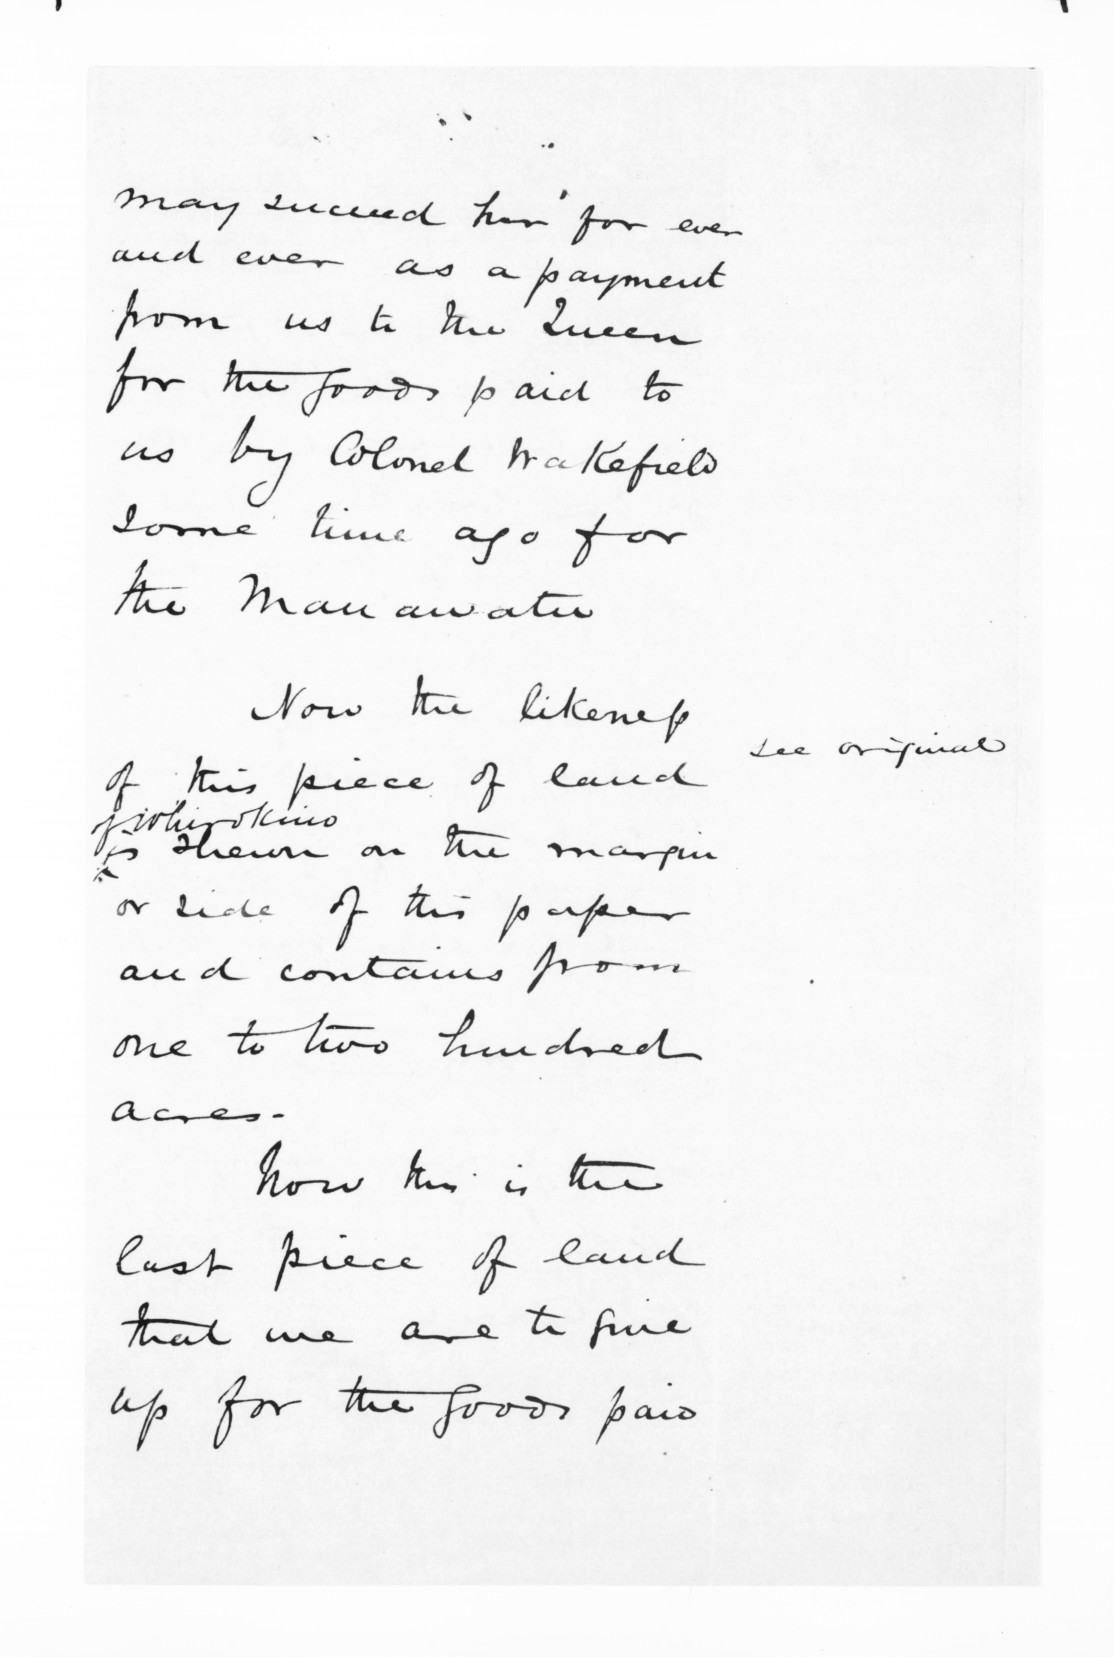 may succeed her for ever
and ever as a payment
from us to the Queen
for the goods paid to
us by Colonel Wakefield
some time ago for
the Manawatu
Now the likeness
see original
of this piece of land
of Whirokino
is shewn on the margin
or side of this paper
and contains from
one to two hundred
acres-
Now this is the
last piece of land
that we are to give
up for the goods paid